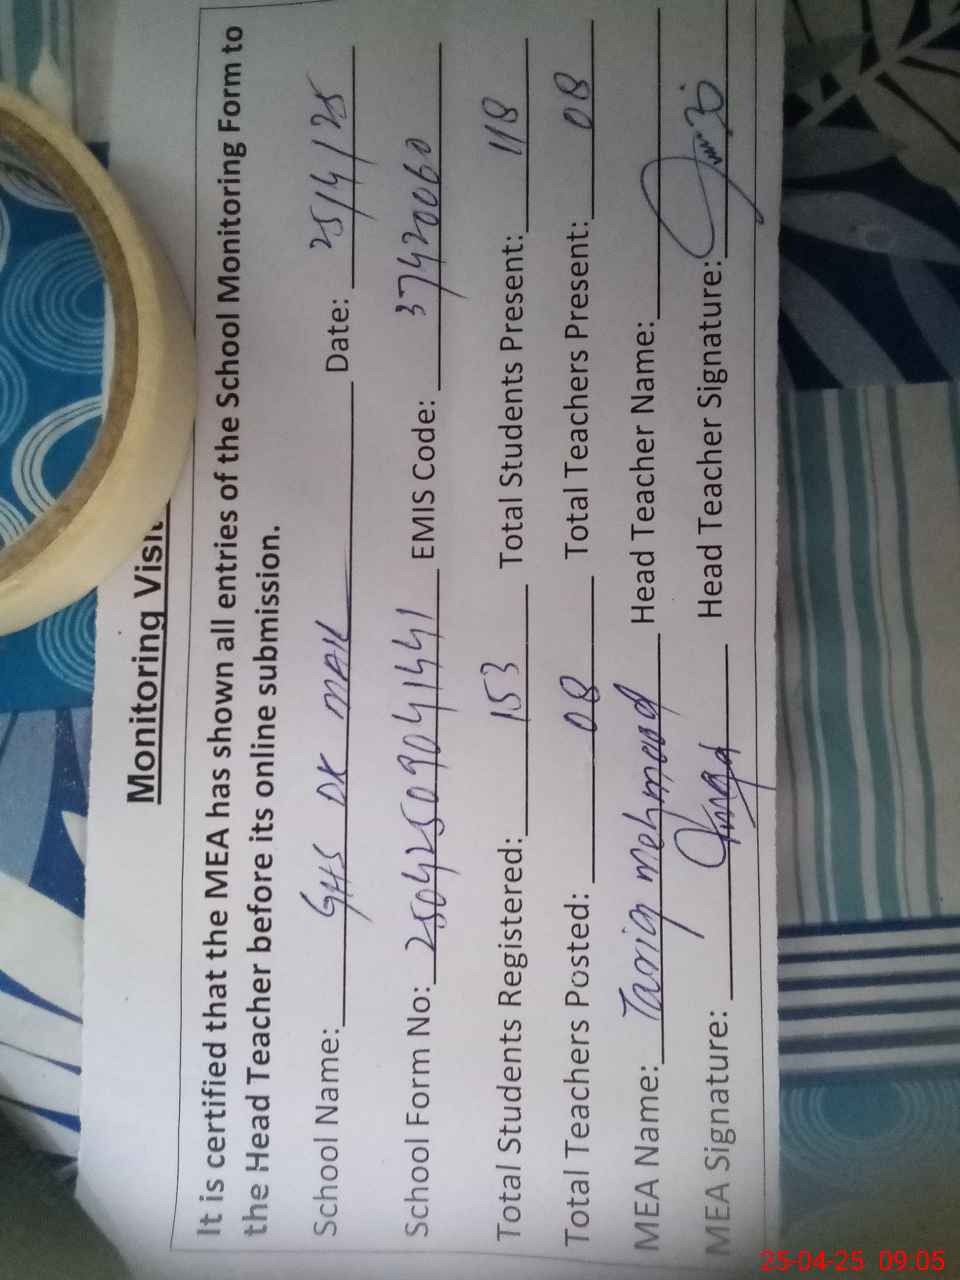 Monitoring Visit
It is certified that the MEA has shown all entries of the School Monitoring Form to
the Head Teacher before its online submission.
School Name: GHS DK MAIK Date: 25/4/25
School Form No: 25042509041441 EMIS Code: 37420060
Total Students Registered: 153 Total Students Present: 118
Total Teachers Posted: 08 Total Teachers Present: 08
MEA Name: Tariq Mehmood Head Teacher Name:
MEA Signature: Head Teacher Signature:
25-04-25 09:05